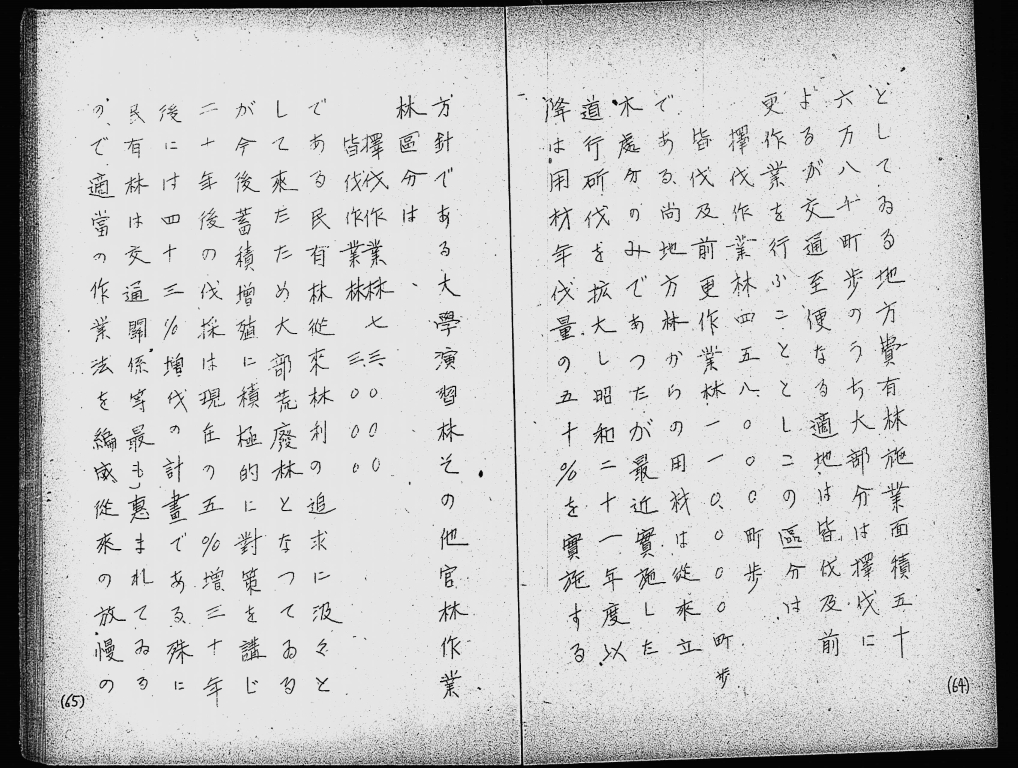 としてゐる地方費有林施業面積五十
六万八千町歩のうち大部分は擇伐に
よるが交通至便なる適地は皆伐及前
更作業を行ふことゝしこの區分は
擇伐作業林四五八〇〇〇町歩
皆伐及前更作業林一一〇、〇〇〇町歩
である尚地方林からの用材は從來立
木處分のみであつたが最近實施した
道行斫伐を拡大し昭和二十一年度以
降は用材年伐量の五十%を實施する
(64)
方針である大學演習林その他官林作業
林區分は、
擇伐作業林七三〇〇〇
皆伐作業林三三〇〇〇
である民有林從來林利の追求に汲々と
して來たため大部荒廢林となつてゐる
が今後蓄積增殖に積極的に對策を講じ
二十年後の伐採は現在の五%增三十年
後には四十三%增伐の計畫である殊に
民有林は交通關係等最も惠まれてゐる
ので適當の作業法を編成從來の放慢の
(65)